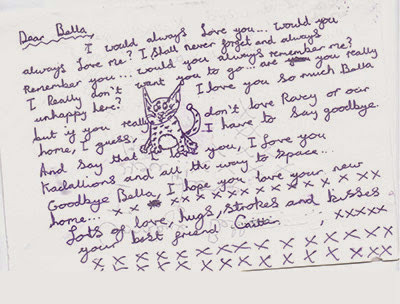 Dear Bella,
I would always love you... would you
always love me? I shall never forget and always
Remember you... would you always remember me?
I Really don't want you to go... are you really
unhappy here? I love you so much Bella
but if you really don't love Ravey or our
home, I guess, I have to say goodbye.
And say that I love you, I Love you
Kadallions and all the way to space...
Goodbye Bella, I hope you love your new
home... x x x x x x x x x x x x
Lots of love, hugs, strokes and kisses
your best friend Caitlin, xxxxx
x x x x x x x x x x x x x x x
x x x x x x x x x x x x x x x